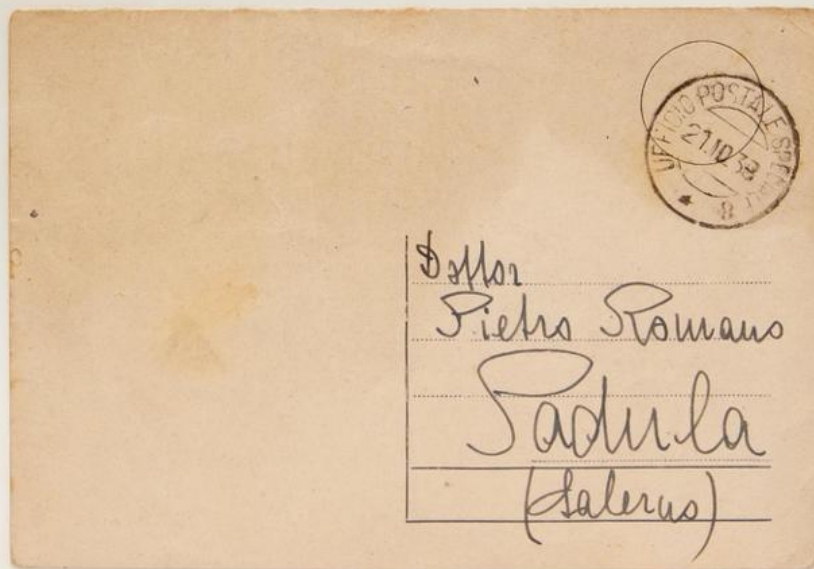 UFFICIO POSTALE SPECIALE
21.10.38
8
Dottor
Pietro Romano
Padula
(Salerno)